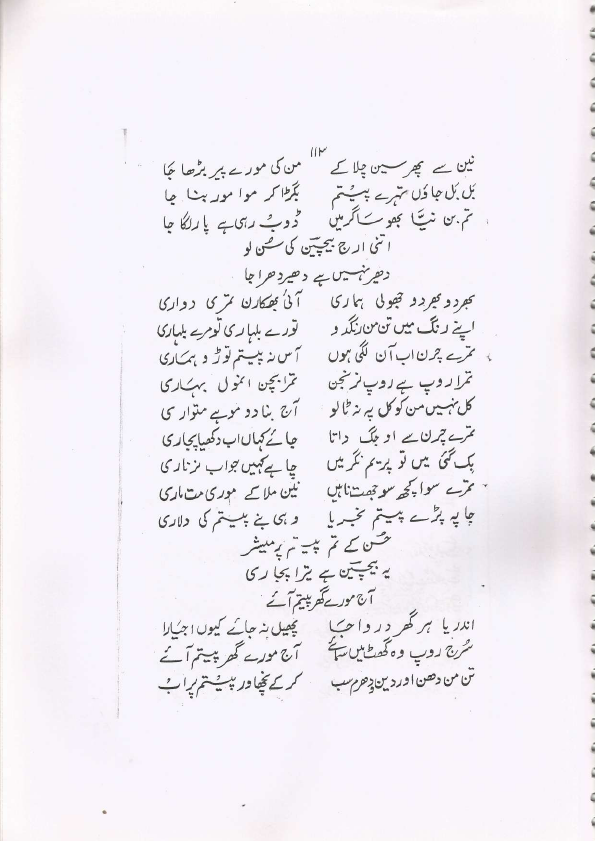 ۱۱۳
نین سے پھر سین چلا کے من کی مورے پیر بڑھا جا
بَل بَل جاؤں تہرے پیتم بگڑا کر موا مور بنا جا
تم بن نیّا بھو ساگر میں ڈوب رہی ہے پار لگا جا
اتنی ارج بیچین کی سُن لو
دھر نہیں ہے دھیر دھرا جا
بھر دو بھر دو جھولی ہماری آئی بھکارن تمری دواری
اپنے رنگ میں تن من رنگ دو تورے بلہاری تو مرے بلہاری
تمرے چرن اب آن لگی ہوں آس نہ پیتم توڑو ہماری
تمرا روپ ہے روپ نرنجن تمرا بچن انمول بہاری
کل نہیں من کو کل پہ نہ ٹالو آج بنا دو موہے متواری
تمرے چرن سے او جگ داتا جائے کہاں اب دکھیا پجاری
بِک گئی میں تو پریم نگر میں چاہے کہیں جواب نرناری
تمرے سوا کچھ سوجھت ناہیں نین ملا کے موری مت ماری
جا پہ پڑے پیتم نجریا وہی بنے پیتم کی دلاری
حُسن کے تم پیتم پرمیشر
یہ بیچین ہے ترا پجاری
آج مورے گھر پیتم آئے
اندریا ہر گھر دروا جا پھیل نہ جائے کیوں اجیارا
سُرج روپ وہ گھٹ میں سمائے آج مورے گھر پیتم آئے
تن من دھن اور دین دِھرم سب کر کے نچھاور پیتم پر اب